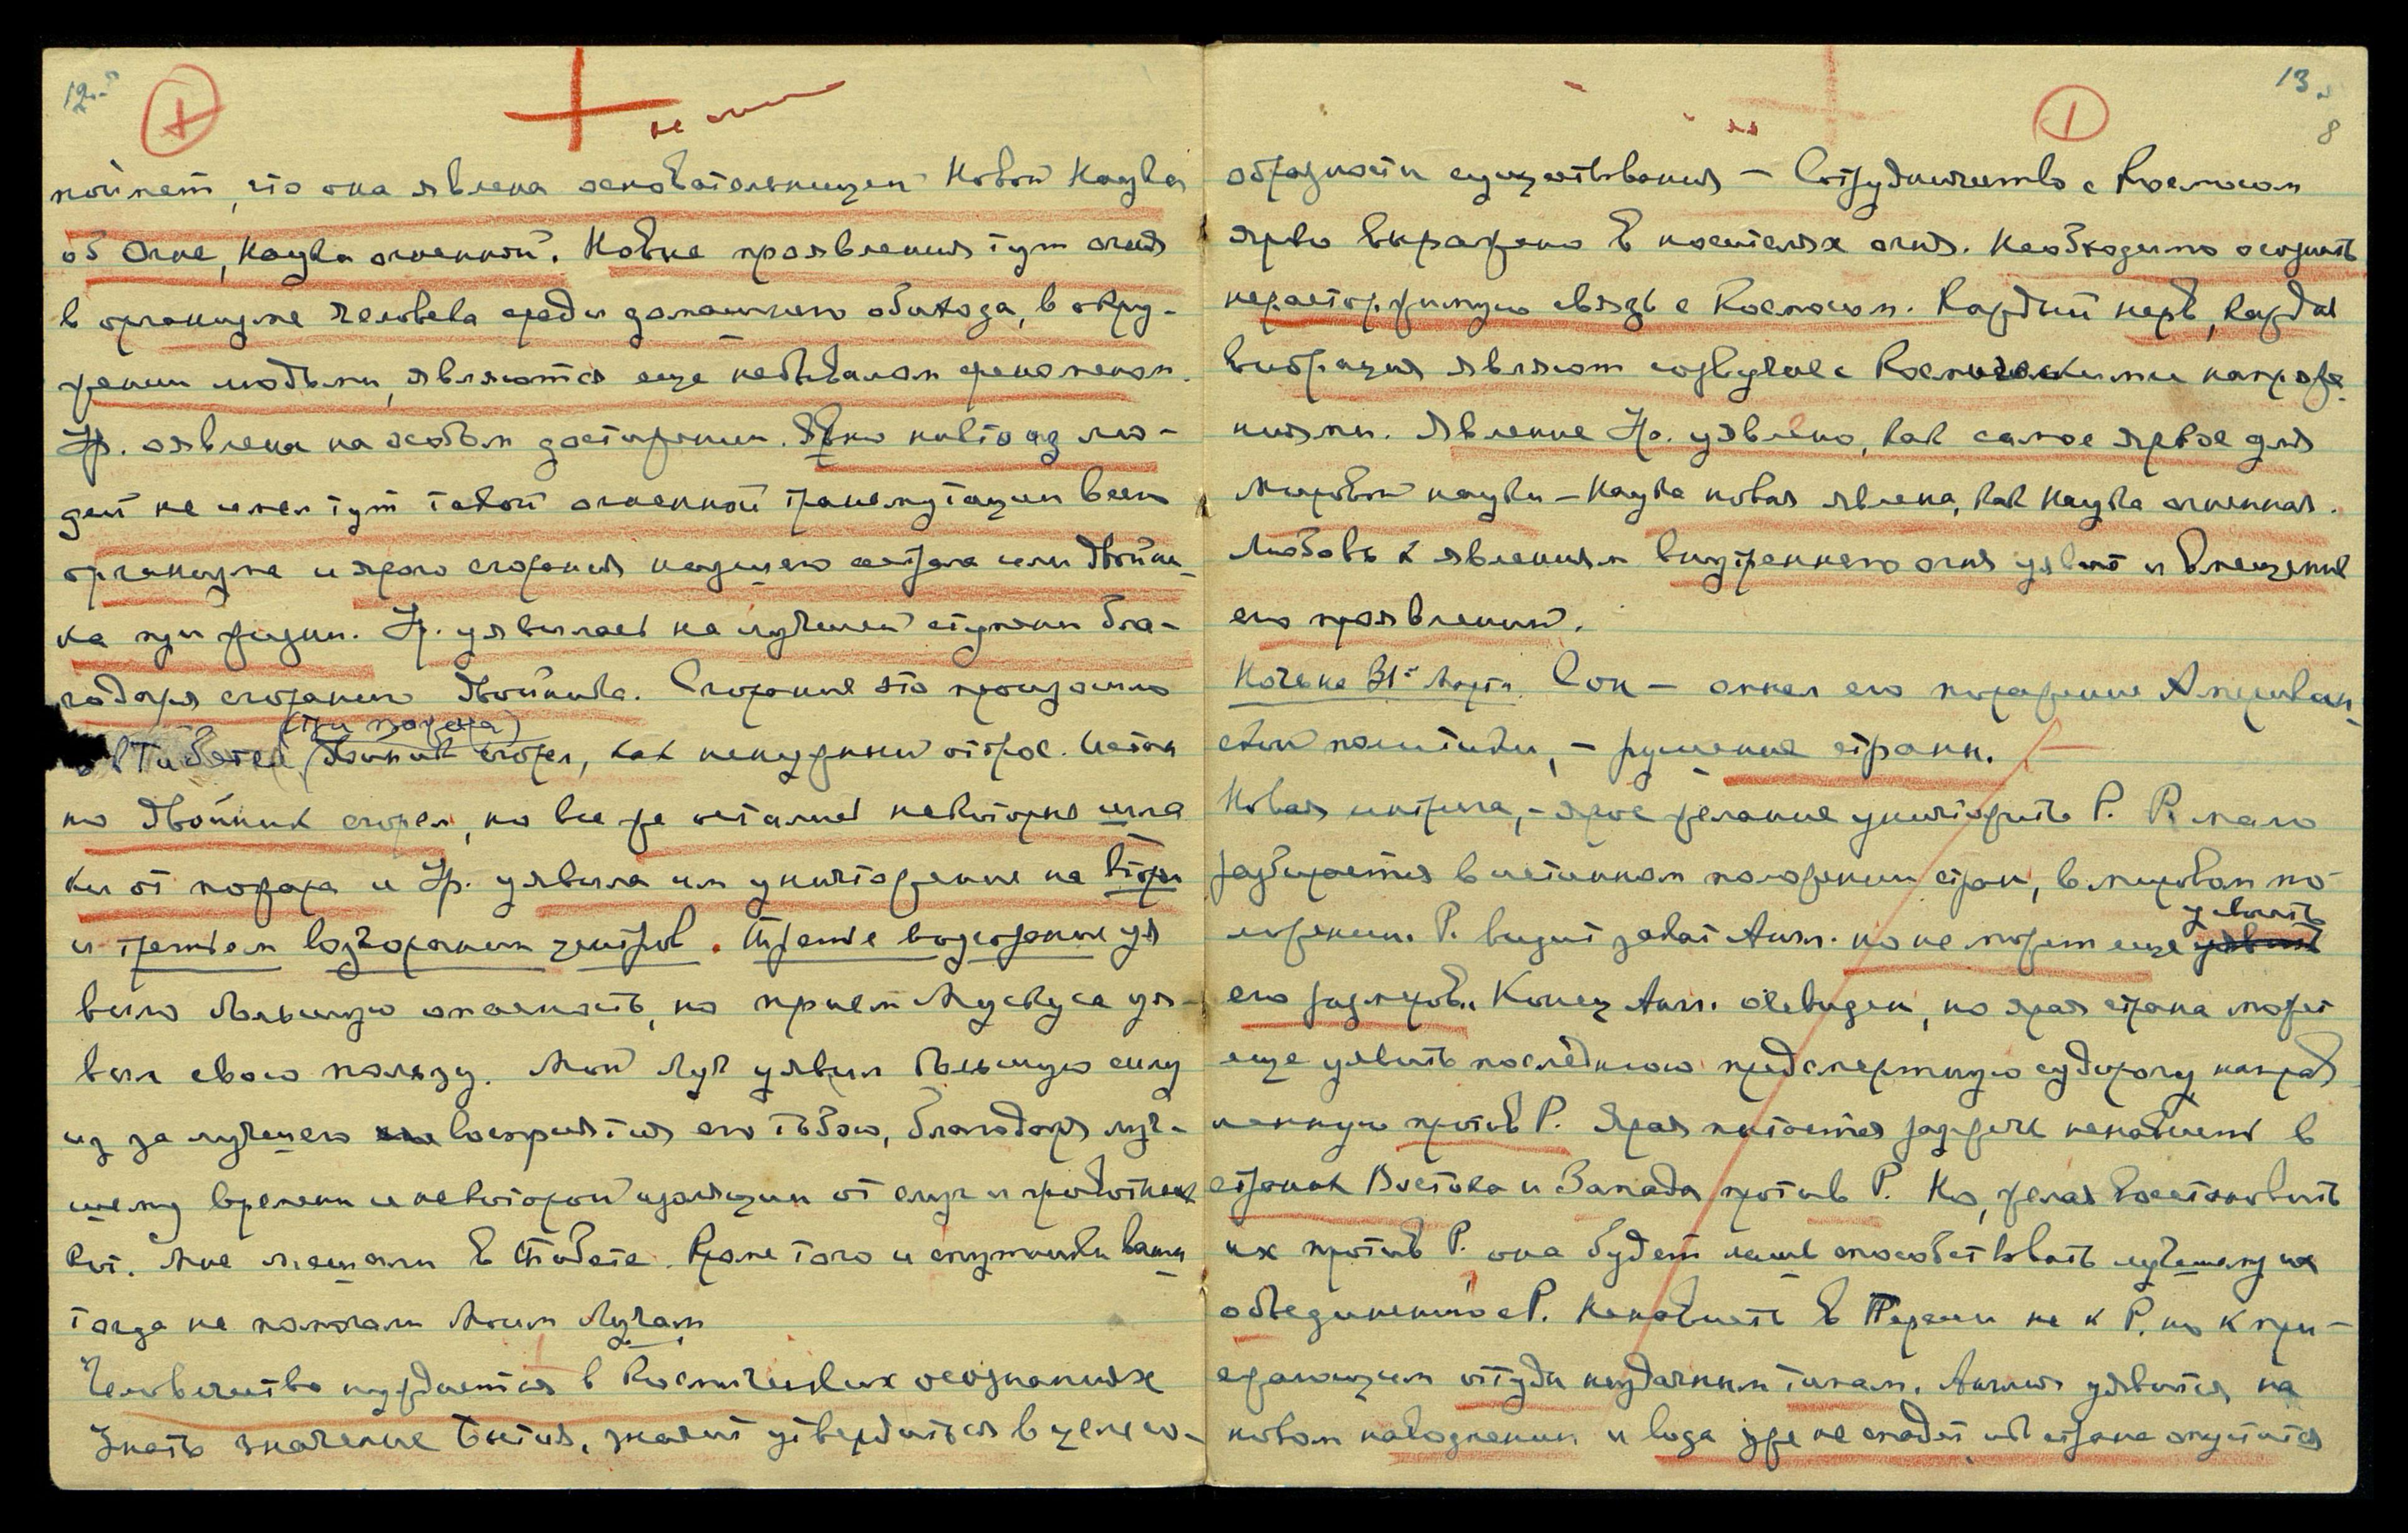 12.
не
поймет, что она явлена основательницей Новой Науки
об Огне, Науки огненной. Новые проявления тут огня
в организме человека среди домашнего обихода, в окру-
жении людьми, являются еще небывалом феноменом.
Ур. оявлена на особом достижении. Ярко никто из лю-
дей не имел тут такой огненной трансмутации всего
организма и ярого сгорания низшего астрала или двойни-
ка при жизни. Ур. уявилась на лучшей ступени бла-
годаря сгоранию двойника. Сгорание это произошло
(три пожара)
в Тибете, двойник сгорел, как ненужный отброс. Истин
но двойник сгорел, но все же остались некоторые шла
ки от пожара и Ур. уявила им уничтожение на втором
и третьем возгорании центров. Третье возгорание уя
вило большую опасность, но прием Мускуса уя-
вил свою пользу. Мой Луч уявил большую силу
из за лучшего восприятия его тобою, благодаря луч-
шему времени и некоторой изоляции от слуг и
Рих. Мне мешали в Тибете. Кроме того и спутники ваши
тогда не помогали Моим Лучам
Человечество нуждается в Космических осознаниях
Знать значение Бытия, значит утвердиться в целесо-
13.
8
образности существования — Сотрудничество с Космосом
ярко выражено в носителях огня. Необходимо осознать
нерасторжимую связь с Космосом. Каждый нерв, каждая
вибрация являют созвучие с Космическими напряже
ниями. Явление Ур. уявлено, как самое яркое для
мировой науки — Наука новая явлена, как Наука огненная.
Любовь к явлениям внутреннего огня уявит и вмещение
его проявлений.
Ночь на 31-е Марта. Сон — огнем его поражение Американ-
ской политики, — рушение страны.
Новая интрига, — ярое желание уничтожить Р. Р. мало
разбирается в истинном положении стран, в мировом по-
ложении. Р. видит закат Англ. но не может еще уявить
уловить
его размеров. Конец Англ. очевиден, но ярая страна может
еще уявить последнюю предсмертную судорогу, направ
ленную против Р. Ярая пытается разжечь ненависть в
странах Востока и Запада против Р. Но, желая восстановить
их против Р. она будет лишь способствовать лучшему их
объединению с Р. Ненависть в Персии не к Р. но к при-
езжающим оттуда неудачным типам. Англия уявится на
новом наводнении и вода уже не спадет, но страна опустится